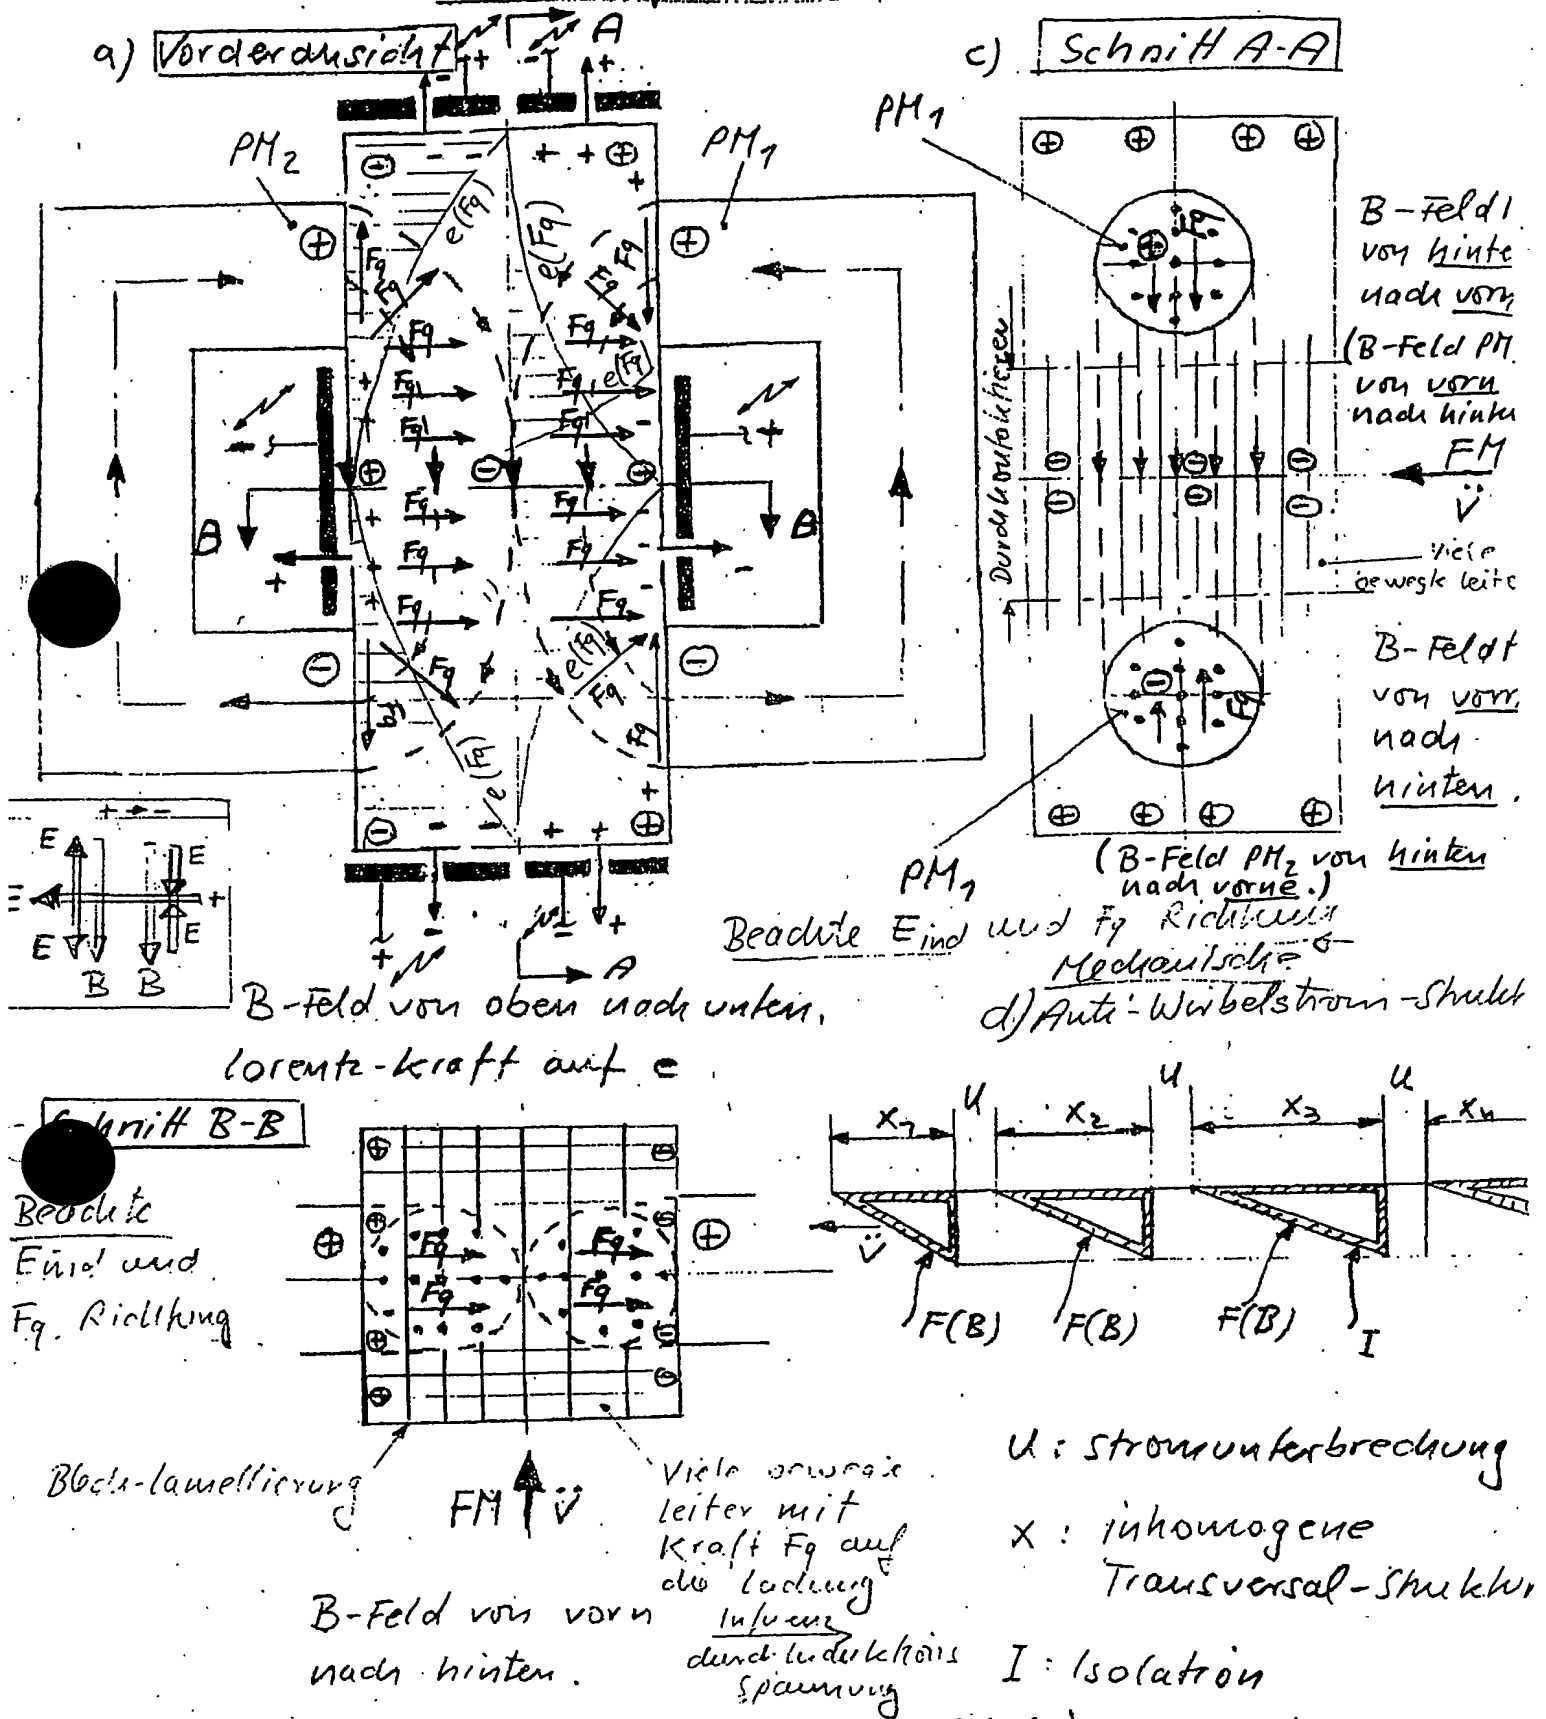 a) Vorderansicht
A
c) Schnitt A-A
PM₂
PM₁
PM₁
e(Fq)
e(Fq)
Fq
Fq
Fq
Fq
Fq
Fq
Fq
Fq
Fq
Fq
e(Fq)
Fq
Fq
B
B
Fq
Fq
Fq
Fq
Fq
Fq
Fq
Fq
e(Fq)
Fq
Fq
e(Fq)
e
A
Fq
B-Feld
von hinte
nach vorn
(B-Feld PM
von vorn
nach hinte
FM
v̈
Durchkontaktieren
Viele
bewegte Leite
B-Feld
von vorn
nach
hinten.
Fq
PM₁
(B-Feld PM₂ von hinten
nach vorne.)
Beachte Eind und Fq Richtung
Mechanische
d) Anti-Wirbelstrom-Strukt
+ → -
E
E
E
E
E
B
B
B-Feld von oben nach unten.
Lorentz-Kraft auf e
Schnitt B-B
Beachte
Eind und
Fq. Richtung
Fq
Fq
Fq
Fq
Blech-Lamellierung
FM
v̈
Viele bewegte
Leiter mit
Kraft Fq auf
die Ladung
Influenz
durch Induktions
spannung
B-Feld von vorn
nach hinten.
U
U
U
X₁
X₂
X₃
X₄
v̈
F(B)
F(B)
F(B)
I
U: Stromunterbrechung
X: inhomogene
Transversal-Struktur
I: Isolation